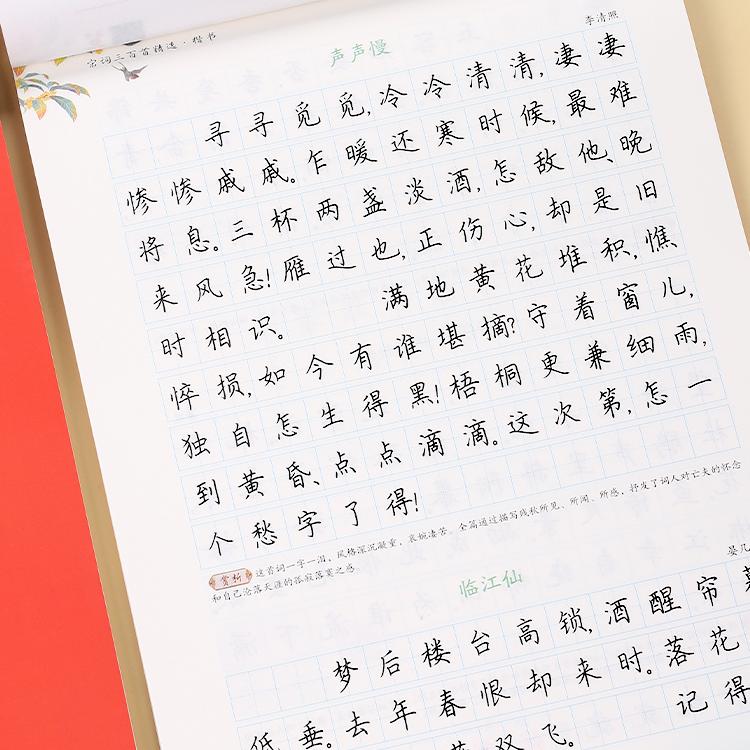 宋词三百首精选·楷书
声声慢
李清照
寻寻觅觅,冷冷清清,凄凄
惨惨戚戚。乍暖还寒时候,最难
将息。三杯两盏淡酒,怎敌他、晚
来风急!雁过也,正伤心,却是旧
时相识。 满地黄花堆积,憔
悴损,如今有谁堪摘?守着窗儿,
独自怎生得黑!梧桐更兼细雨,
到黄昏、点点滴滴。这次第,怎一
个愁字了得!
赏析 这首词一字一泪,风格深沉凝重,哀婉凄苦。全篇通过描写残秋所见、所闻、所感,抒发了词人对亡夫的怀念
和自己沦落天涯的孤寂落寞之感。
临江仙
晏几
梦后楼台高锁,酒醒帘幕
低垂。去年春恨却来时。落花
双飞。 记得